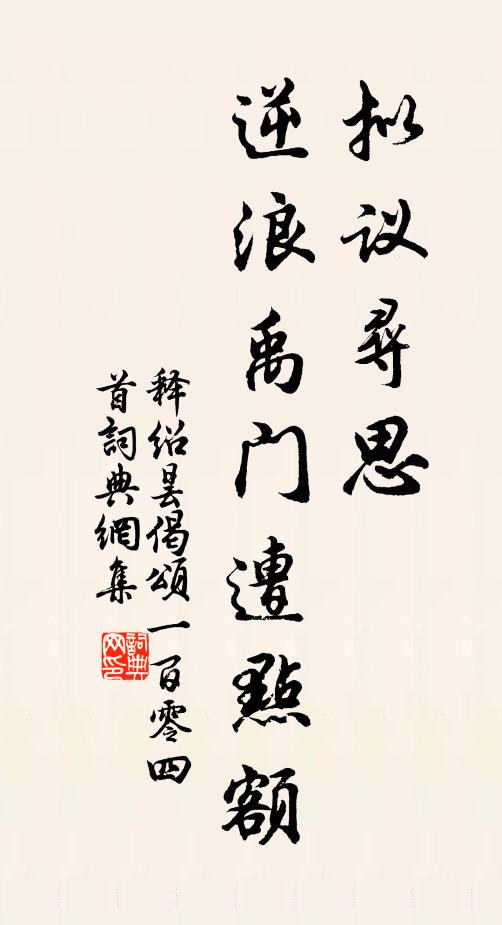 拟议寻思
逆浪禹门遭點额
释绍昙偈颂一百零四
首詞典網集
詞典
网印